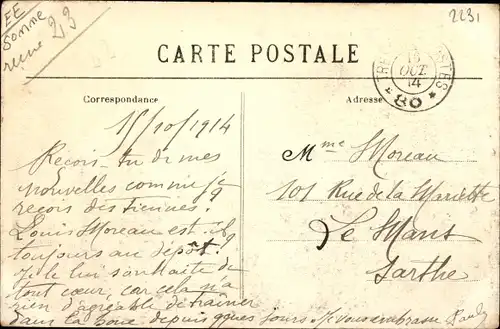 EE
Somme
ruine
23
2231
CARTE POSTALE
TRE ET POSTES
15
OCT
14
* 80 *
Correspondance
Adresse
15/10/1914
Reçois-tu de mes
nouvelles comme je
reçois des tiennes.
Louis Moreau est-il
toujours au dépôt?
Je le lui souhaite de
tout cœur, car cela n'a
rien d'agréable de traîner
dans la boue depuis qques jours. Je vous embrasse. Paul
Mme Moreau
101 Rue de la Mariette
Le Mans
Sarthe